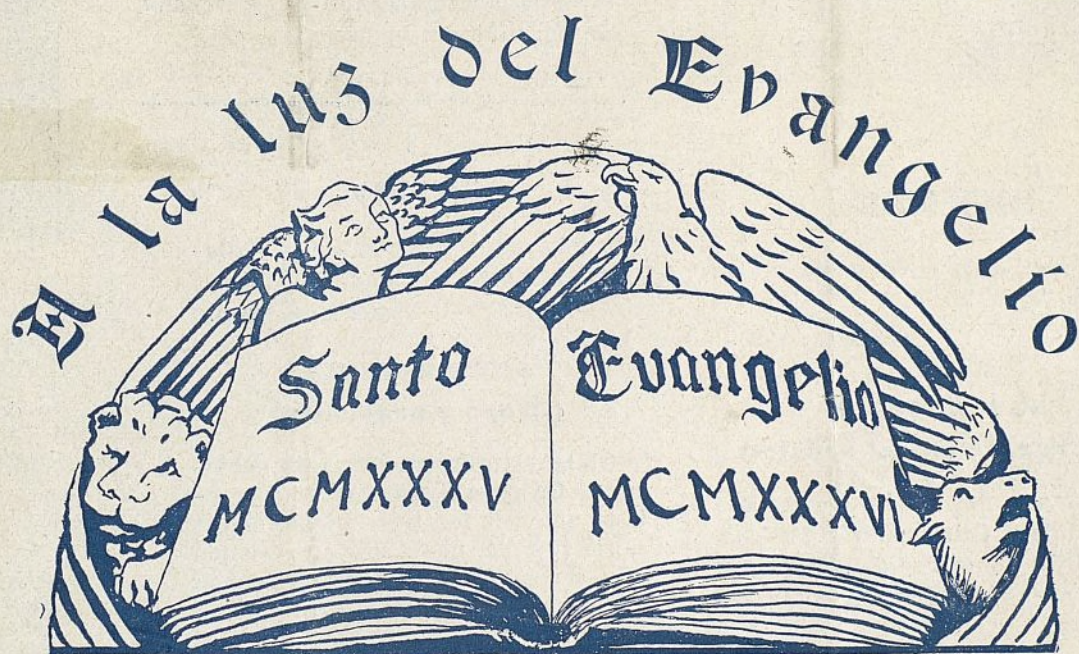 A la luz del Evangelio
Santo Evangelio
MCMXXXV MCMXXXVI